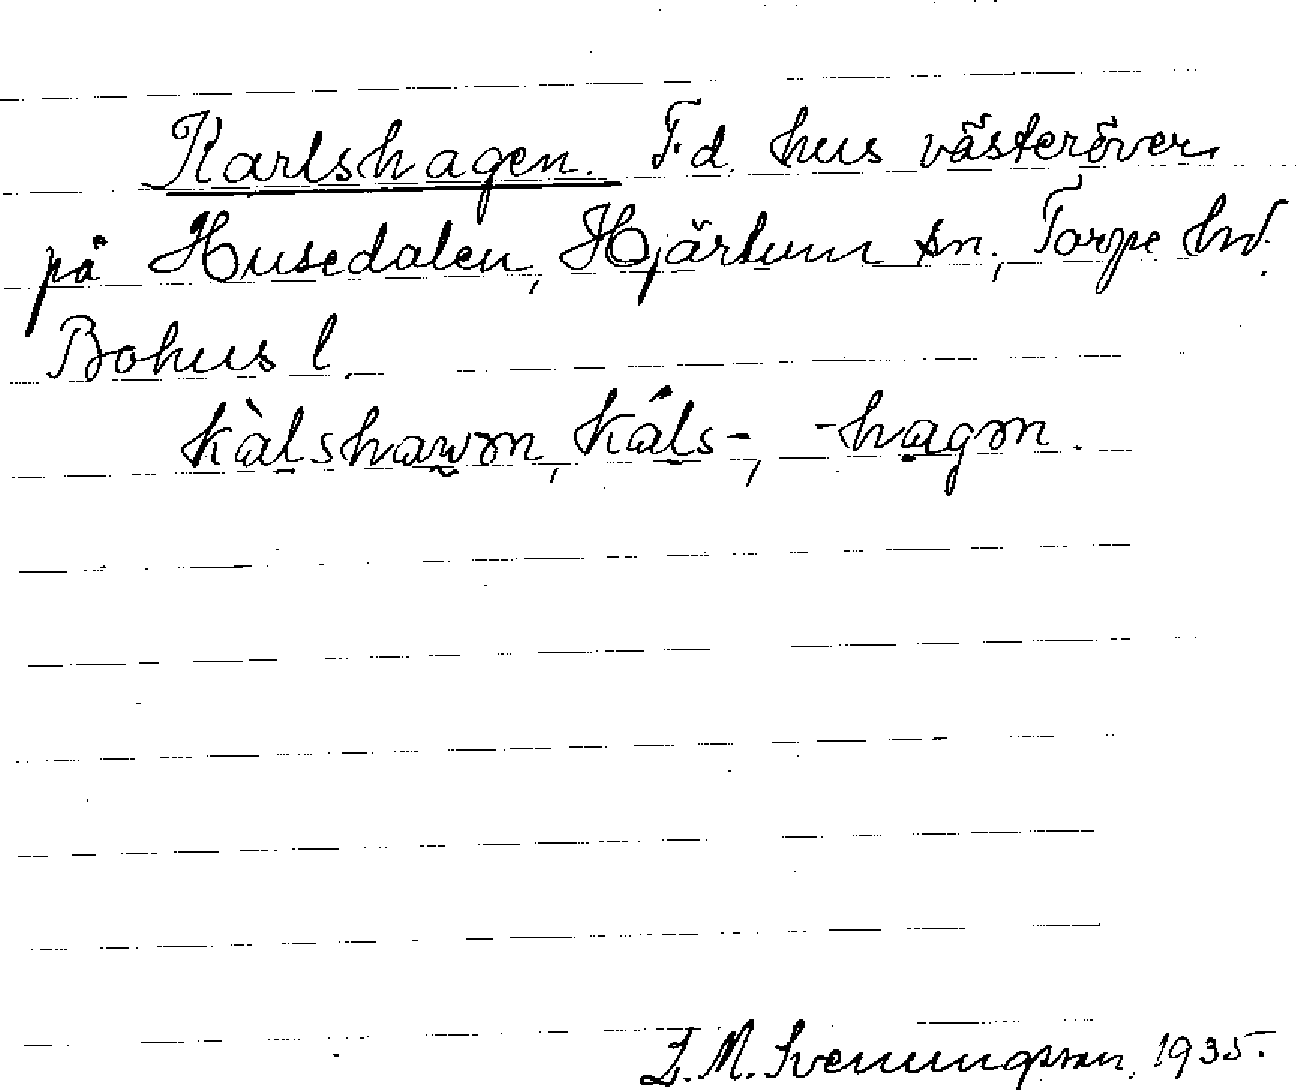 Karlshagen. F.d. hus västeröver
på Husedalen, Hjärtum sn, Torpe hd.
Bohus l.
kàlshawən, káls-, -hagən.
S. M. Svenungsson, 1935.